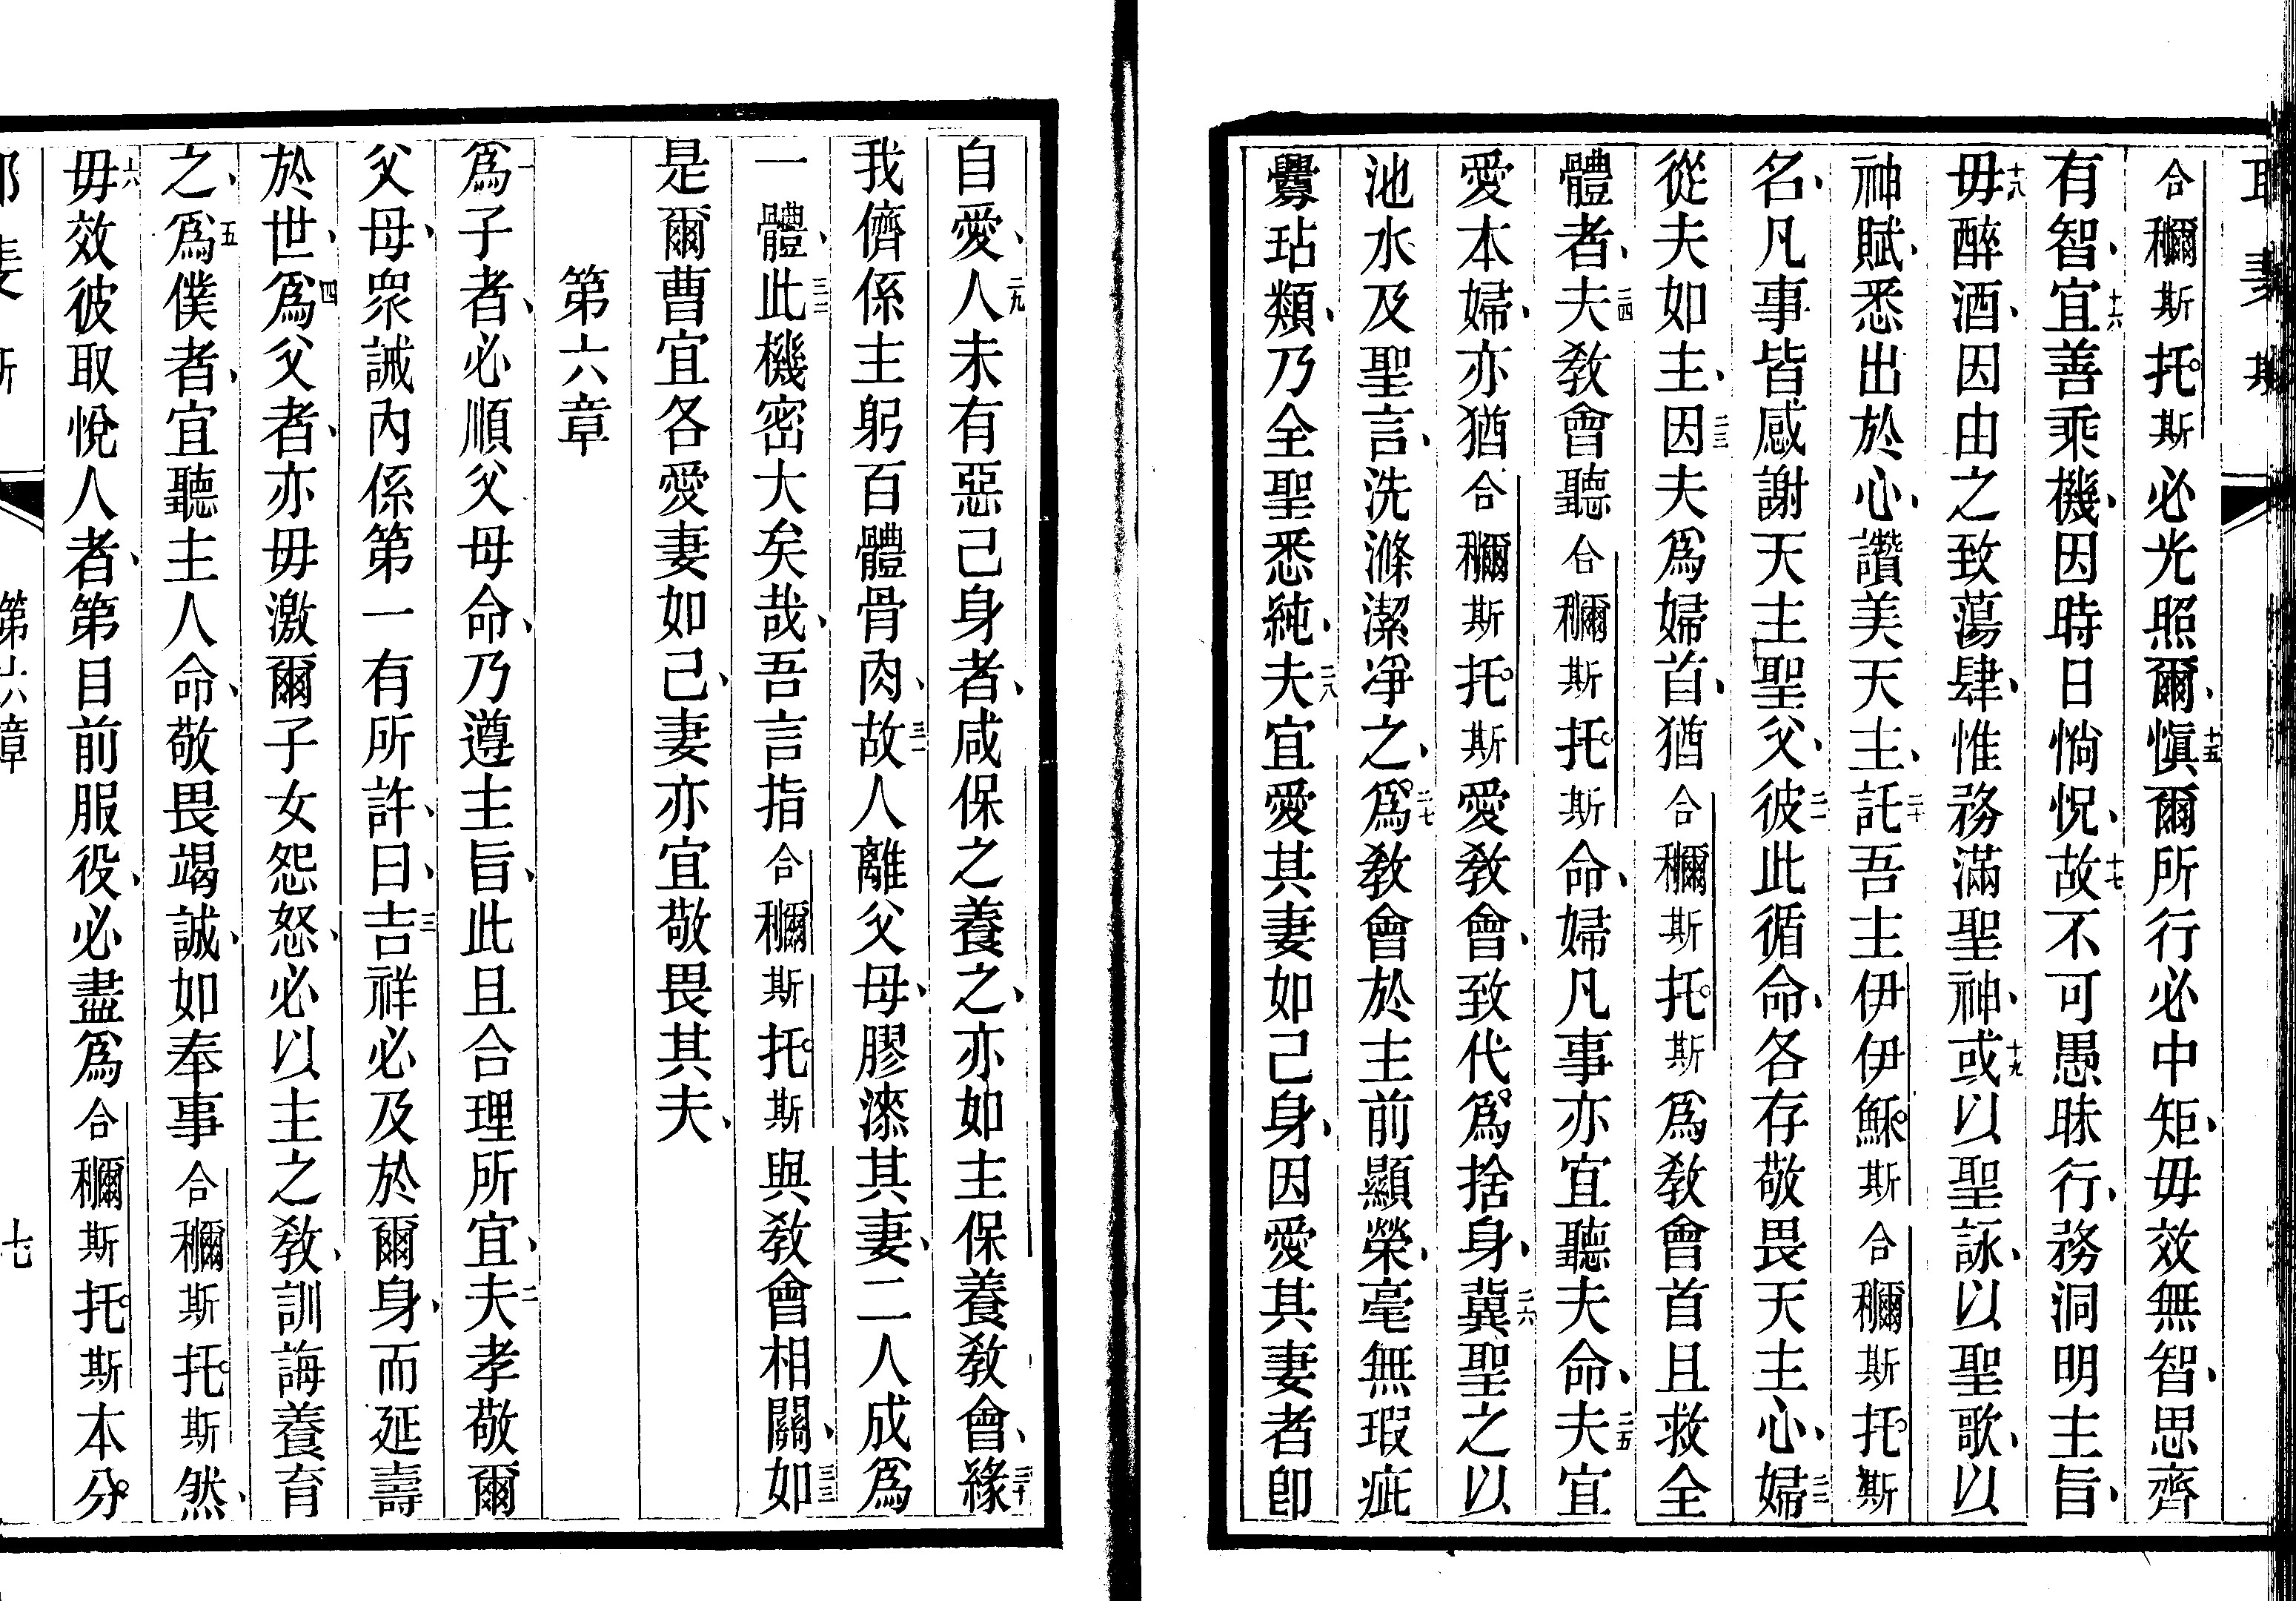 合穪斯托斯必光照爾、十五愼爾所行必中矩、毋效無智、思齊
有智、十六宜善乘機、因時日惝怳、十七故不可愚昧行、務洞明主旨、
十八毋醉酒、因由之致蕩肆、惟務滿聖神、十九或以聖詠、以聖歌、以
神賦、悉出於心、讚美天主、二十託吾主伊伊穌斯合穪斯托斯
名、凡事皆感謝天主聖父、二一彼此循命、各存敬畏天主心、二二婦
從夫如主、二三因夫爲婦首、猶合穪斯托斯爲敎會首且救全
體者、二四夫敎會聽合穪斯托斯命、婦凡事亦宜聽夫命、二五夫宜
愛本婦、亦猶合穪斯托斯愛敎會、致代爲捨身、二六冀聖之以
池水及聖言、洗滌潔淨之、二七爲敎會於主前顯榮、毫無瑕疵
釁玷類、乃全聖悉純、二八夫宜愛其妻如己身、因愛其妻者卽
自愛、二九人未有惡己身者、咸保之養之、亦如主保養敎會、三十緣
我儕係主躬百體骨肉、三一故人離父母、膠漆其妻、二人成爲
一體、三二此機密大矣哉、吾言指合穪斯托斯與敎會相關、三三如
是爾曹宜各愛妻如己、妻亦宜敬畏其夫、
第六章
一爲子者、必順父母命、乃遵主旨、此且合理所宜、二夫孝敬爾
父母、眾誡內係第一有所許、曰、三吉祥必及於爾身、而延壽
於世、四爲父者、亦毋激爾子女怨怒、必以主之敎、訓誨養育
之、五爲僕者、宜聽主人命、敬畏竭誠、如奉事合穪斯托斯然、
六毋效彼取悅人者、第目前服役、必盡爲合穪斯托斯本分
第六章 七